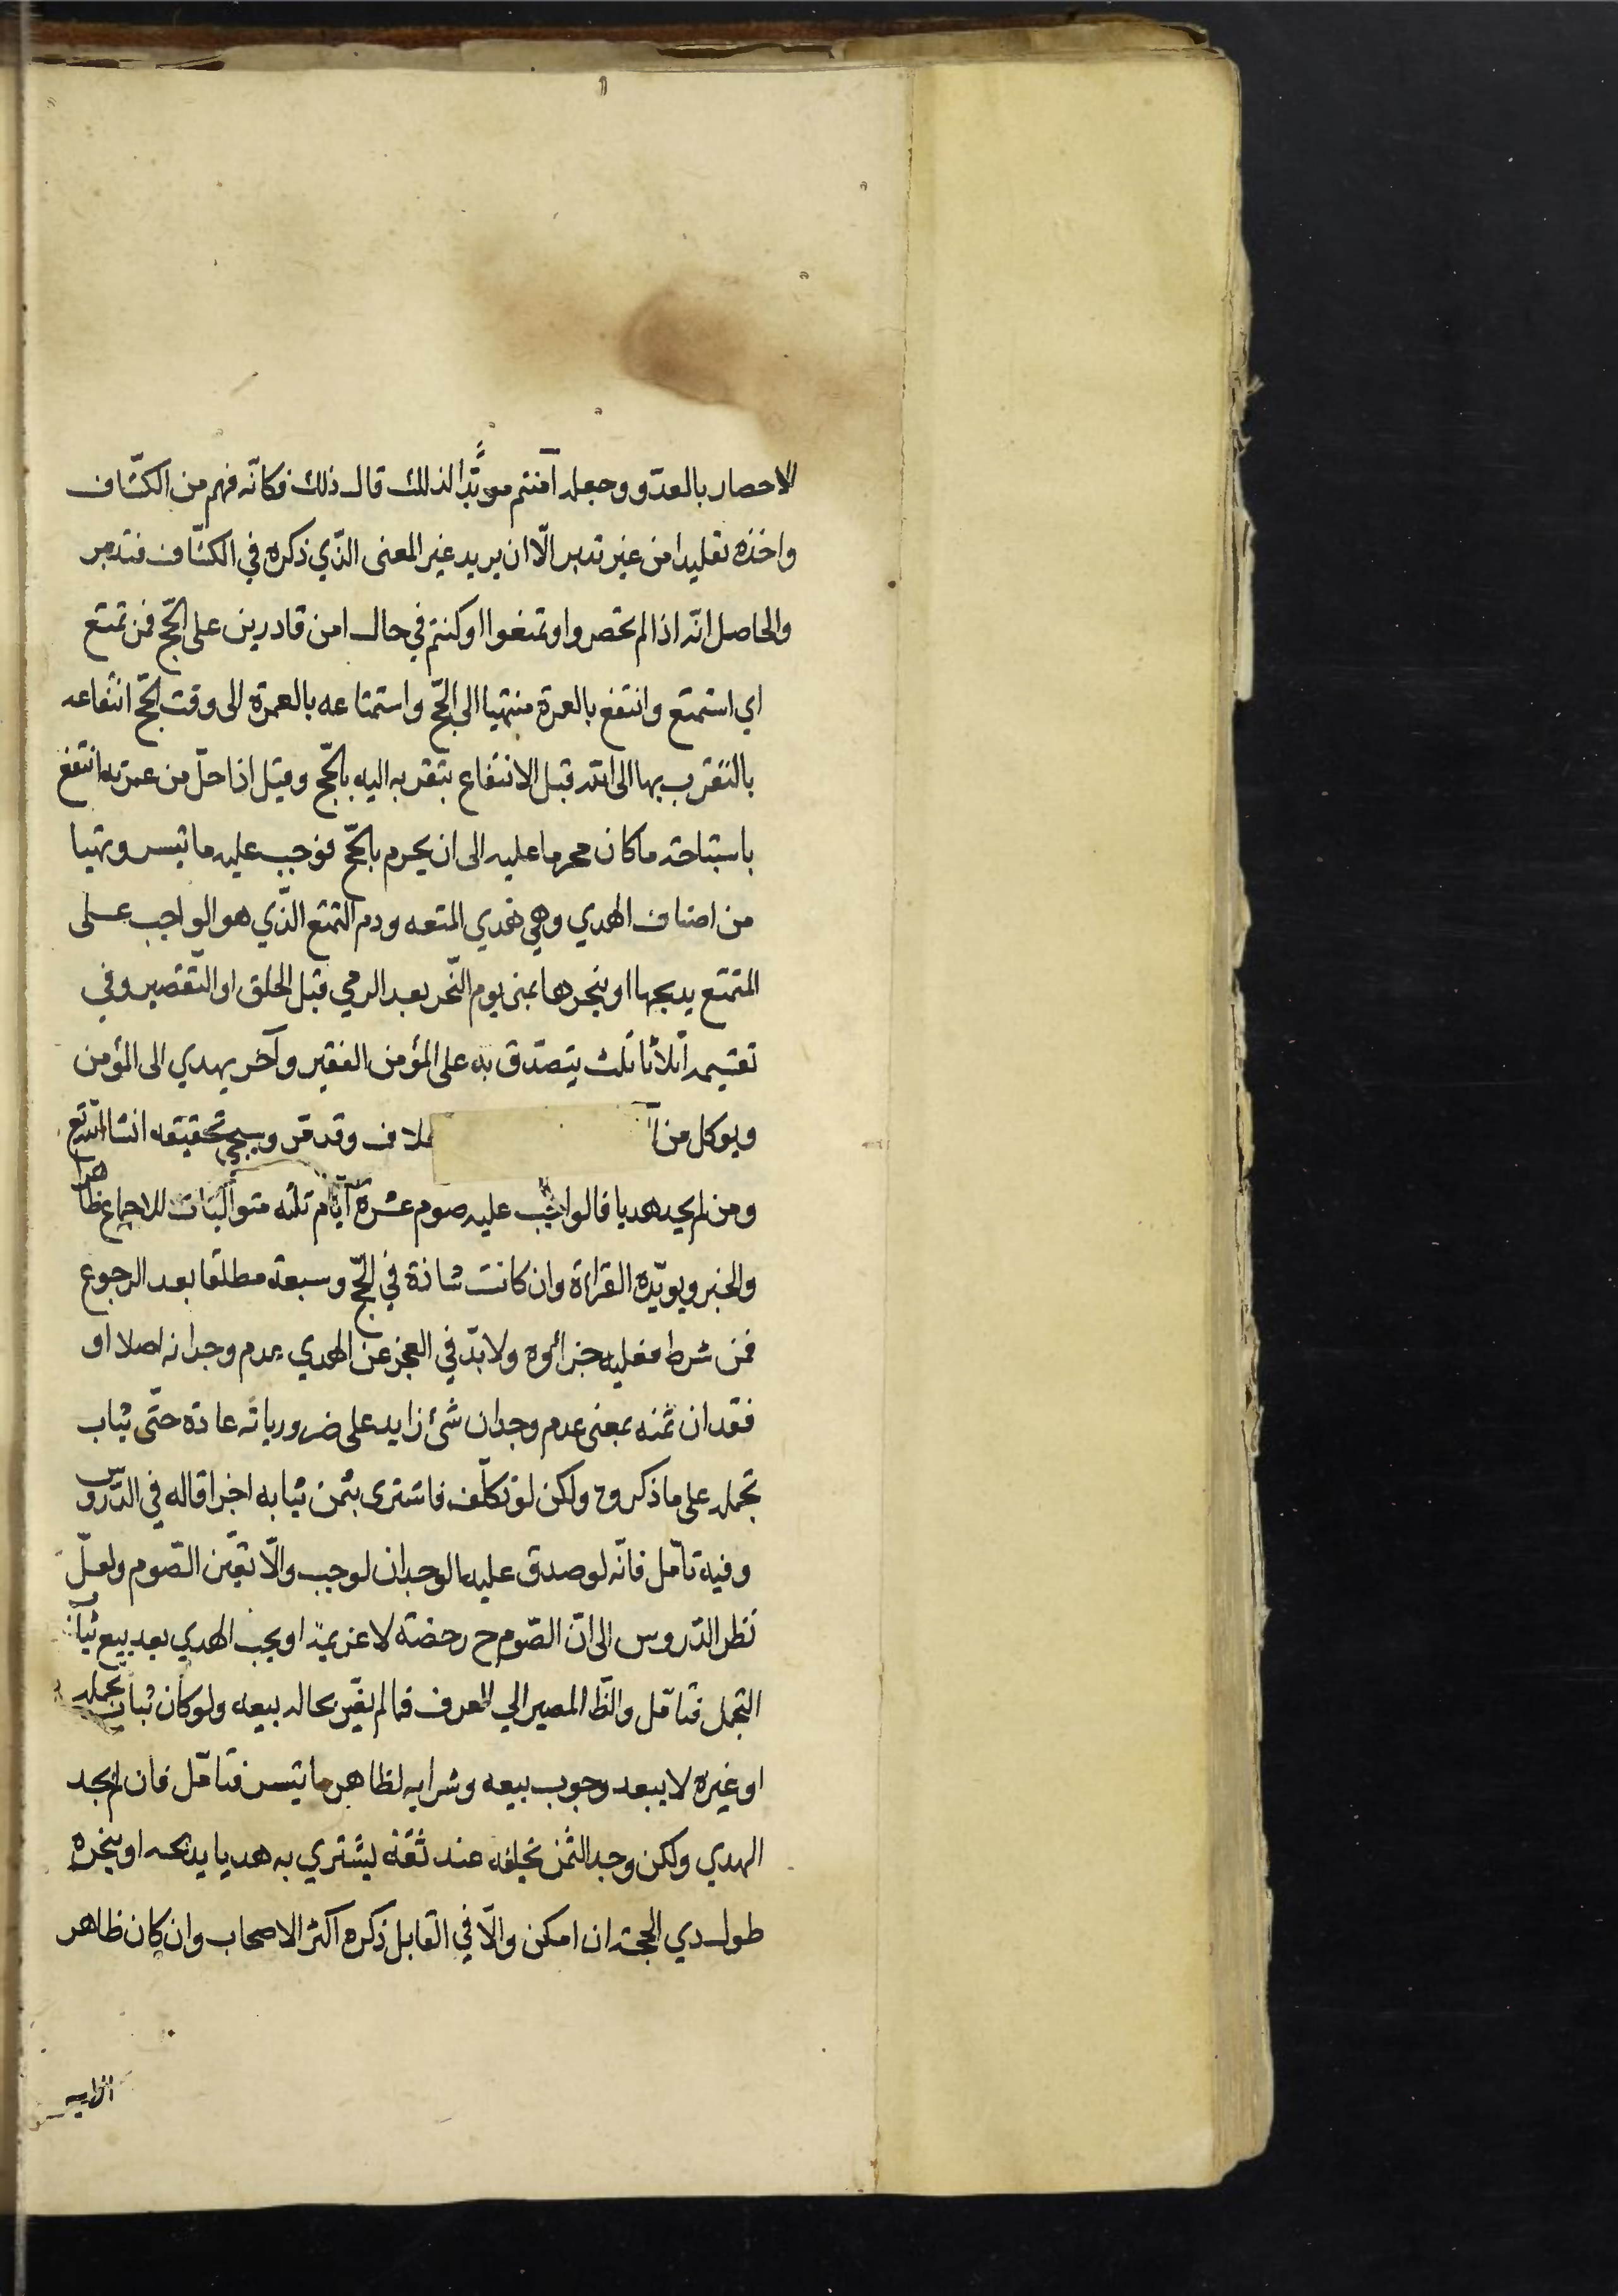 الاحصار بالعدّو وجعله آمنتم مويّدًا لذلك قال ذلك فكانّه فهم من الكشّاف
واخذه تقليدا من غير تدبر الّا ان يريد غير المعنى الذّي ذكره في الكشّاف فتدبر
والحاصل انّه اذا لم تحصروا وتمنعوا او كنتم في حال امن قادرين على الحّج فمن تمتع
اي استمتع وانتفع بالعمرة منتهيا الى الحّج واستمتاعه بالعمرة الى وقت الحّج انتفاعه
بالتقرب بها الى الله قبل الانتفاع بتقربه اليه بالحّج وقيل اذا حلّ من عمرته انتفع
باستباحة ما كان محرما عليه الى ان يحرم بالحّج فوجب عليه ما تيسر وتهيا
من اصناف الهدي وهي هدي المتعه ودم التمتع الذّي هو الواجب على
المتمتع يذبحها او ينحرها بمنى يوم النّحر بعد الرمي قبل الحلق او التّقصير وفي
تقسيمه اثلاثا ثلث يتصدّق به على المؤمن الفقير وآخر يهدي الى المؤمن
ويوكل من لاف وقد مّر وسيجئ تحقيقه انشا الله تع
ومن لم يجد هديا فالواجب عليه صوم عشرة ايّام ثلثه متواليات للاجماع ظاهرا
والخبر ويويّده القراءة وان كانت شاذة في الحّج وسبعة مطلقا بعد الرجوع
فمن شرط فعليه جزائوه ولابدّ في العجز عن الهدي عدم وجدانه اصلا او
فقدان ثمنه بمعنى عدم وجدان شئ زايد على ضرورياته عادة حتّى ثياب
تجمله على ما ذكروه ولكن لو تكلّف فاشترى بثمن ثيابه اجزا قاله في الدّروس
وفيه تامّل فانّه لو صدق عليه الوجدان لوجب والّا تعيّن الصّوم ولعلّ
نظر الدّروس الى انّ الصّوم ح رخصة لا عزيمة او يجب الهدي بعد بيع ثياب
التجمل فتامّل والظّ المصير الي العرف فما لم يغيّر بحاله بيعه ولو كان ثياب تجمله
او غيره لا يبعد وجوب بيعه وشرايه لظاهر ما تيسر فتامّل فان لم يجد
الهدي ولكن وجد الثمن يخلفه عند ثقه ليشتري به هديا يذبحه او ينحره
طول ذي الحجة ان امكن والّا في القابل ذكره اكثر الاصحاب وان كان ظاهر
الايه